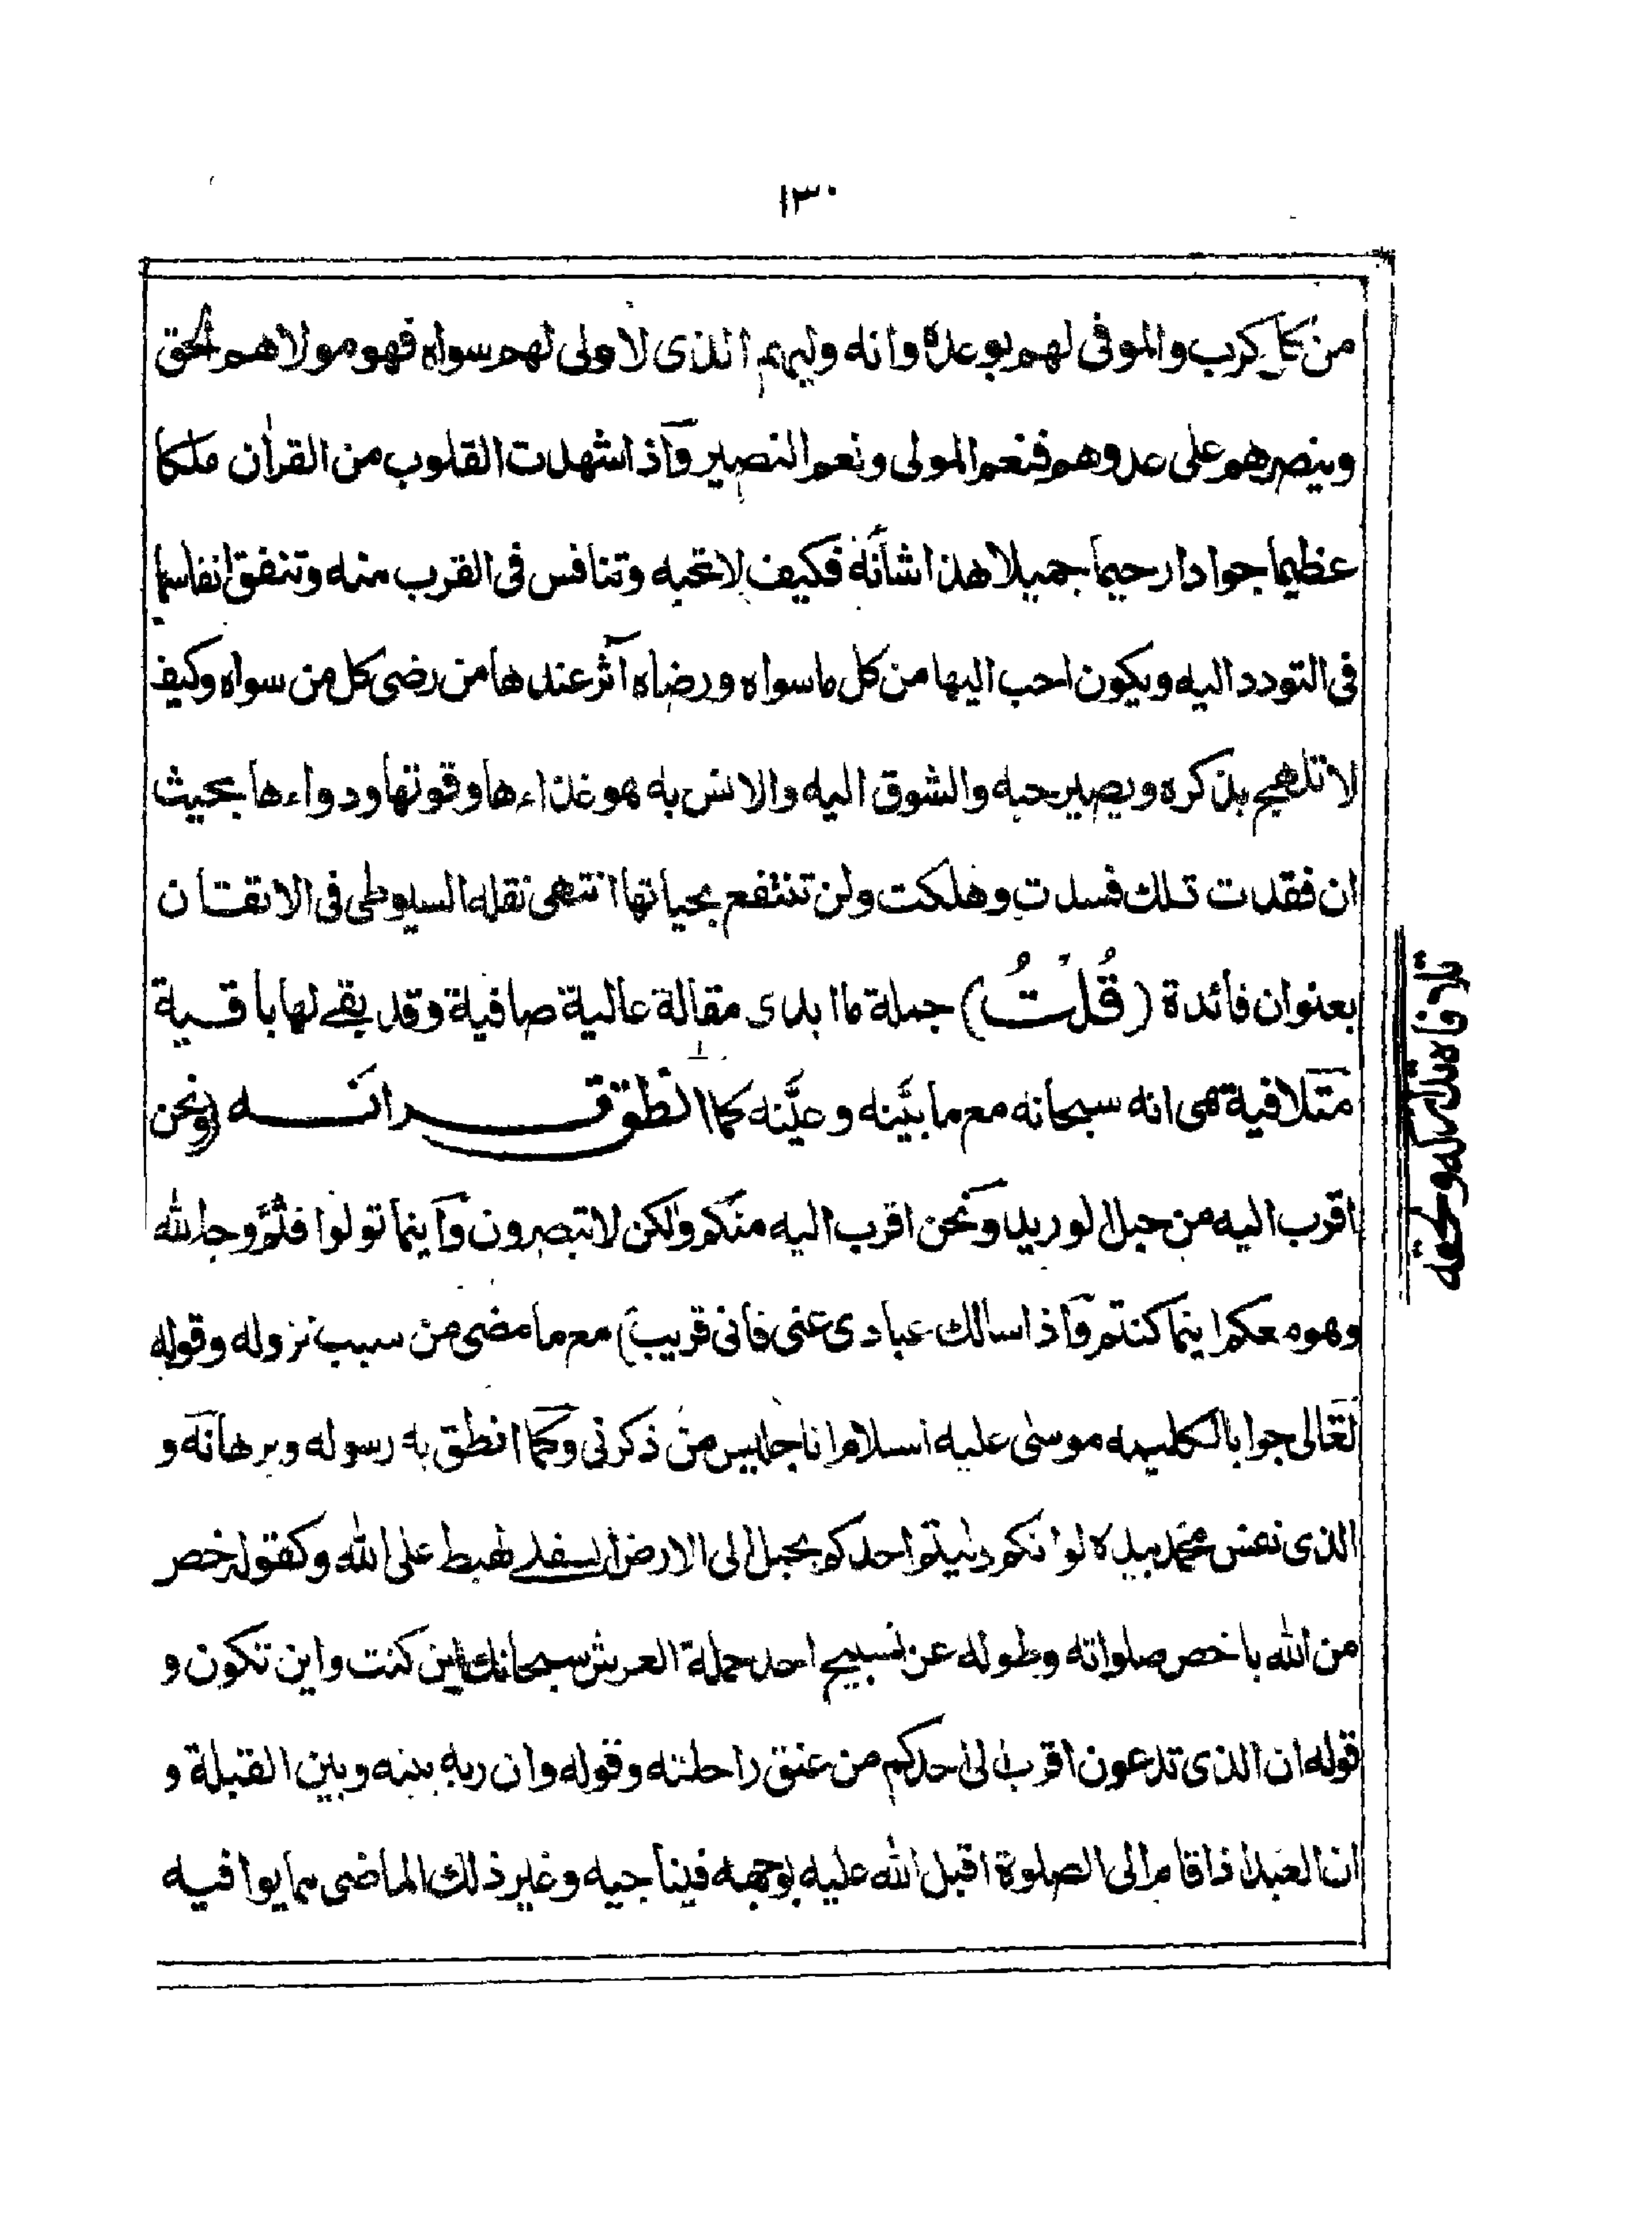 ١٣٠
من كل كرب والموفى لهم بوعده وانه وليهم الذى لا ولى لهم سواه فهو مولاهم الحق
وينصرهم على عدوهم فنعم المولى ونعم النصير وآذا شهدت القلوب من القران ملكا
عظيما جوادا رحيما جميلا هذا شأنه فكيف لا تحبه وتنافس فى القرب منه وتنفق انفاسها
فى التودد اليه ويكون احب اليها من كل ما سواه ورضاه آثر عندها من رضى كل من سواه وكيف
لا تلهج بذكره ويصير حبه والشوق اليه والانس به هو غذاءها وقوتها ودواءها بحيث
ان فقدت تلك فسدت وهلكت ولن تنتفع بحياتها انتهى نقله السيوطى فى الاتقان
بعنوان فائدة (قُلْتُ) جملة ما ابدى مقالة عالية صافية وقد بقے لها باقية
متلافية هى انه سبحانه مع ما بيَّنه وعيَّنه كما انطق قرانه (ونحن
اقرب اليه من حبل الوريد ونحن اقرب اليه منكم ولكن لا تبصرون وآينما تولوا فثمّ وجه الله
وهو معكم اينما كنتم وآذا سالك عبادى عنى فانى قريب) مع ما مضى من سبب نزوله وقوله
تعالى جوابا لكليمه موسى عليه السلام انا جليس من ذكرنى وكما انطق به رسوله وبرهانه و
الذى نفس محمد بيده لو انكم دليتم احدكم بحبل الى الارض السفلے لهبط على الله وكقوله خص
من الله باخص صلواته وطوله عن تسبيح احد حملة العرش سبحانك اين كنت واين تكون و
قوله ان الذى تدعون اقرب الى احدكم من عنق راحلته وقوله وان ربه بينه وبين القبلة و
ان العبد اذا قام الى الصلوة اقبل الله عليه بوجهه فيناجيه وغير ذلك الماضى مما يوافيه